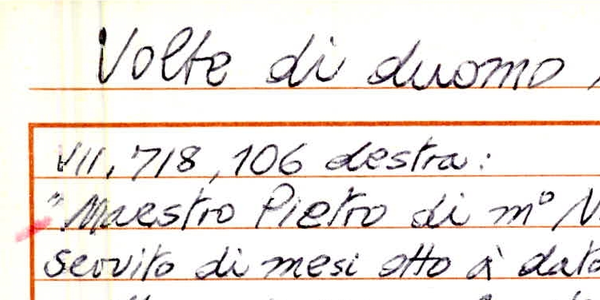 Volte di duomo
VII, 718, 106 destra:
"Maestro Pietro di m° N
servito di mesi otto à dato